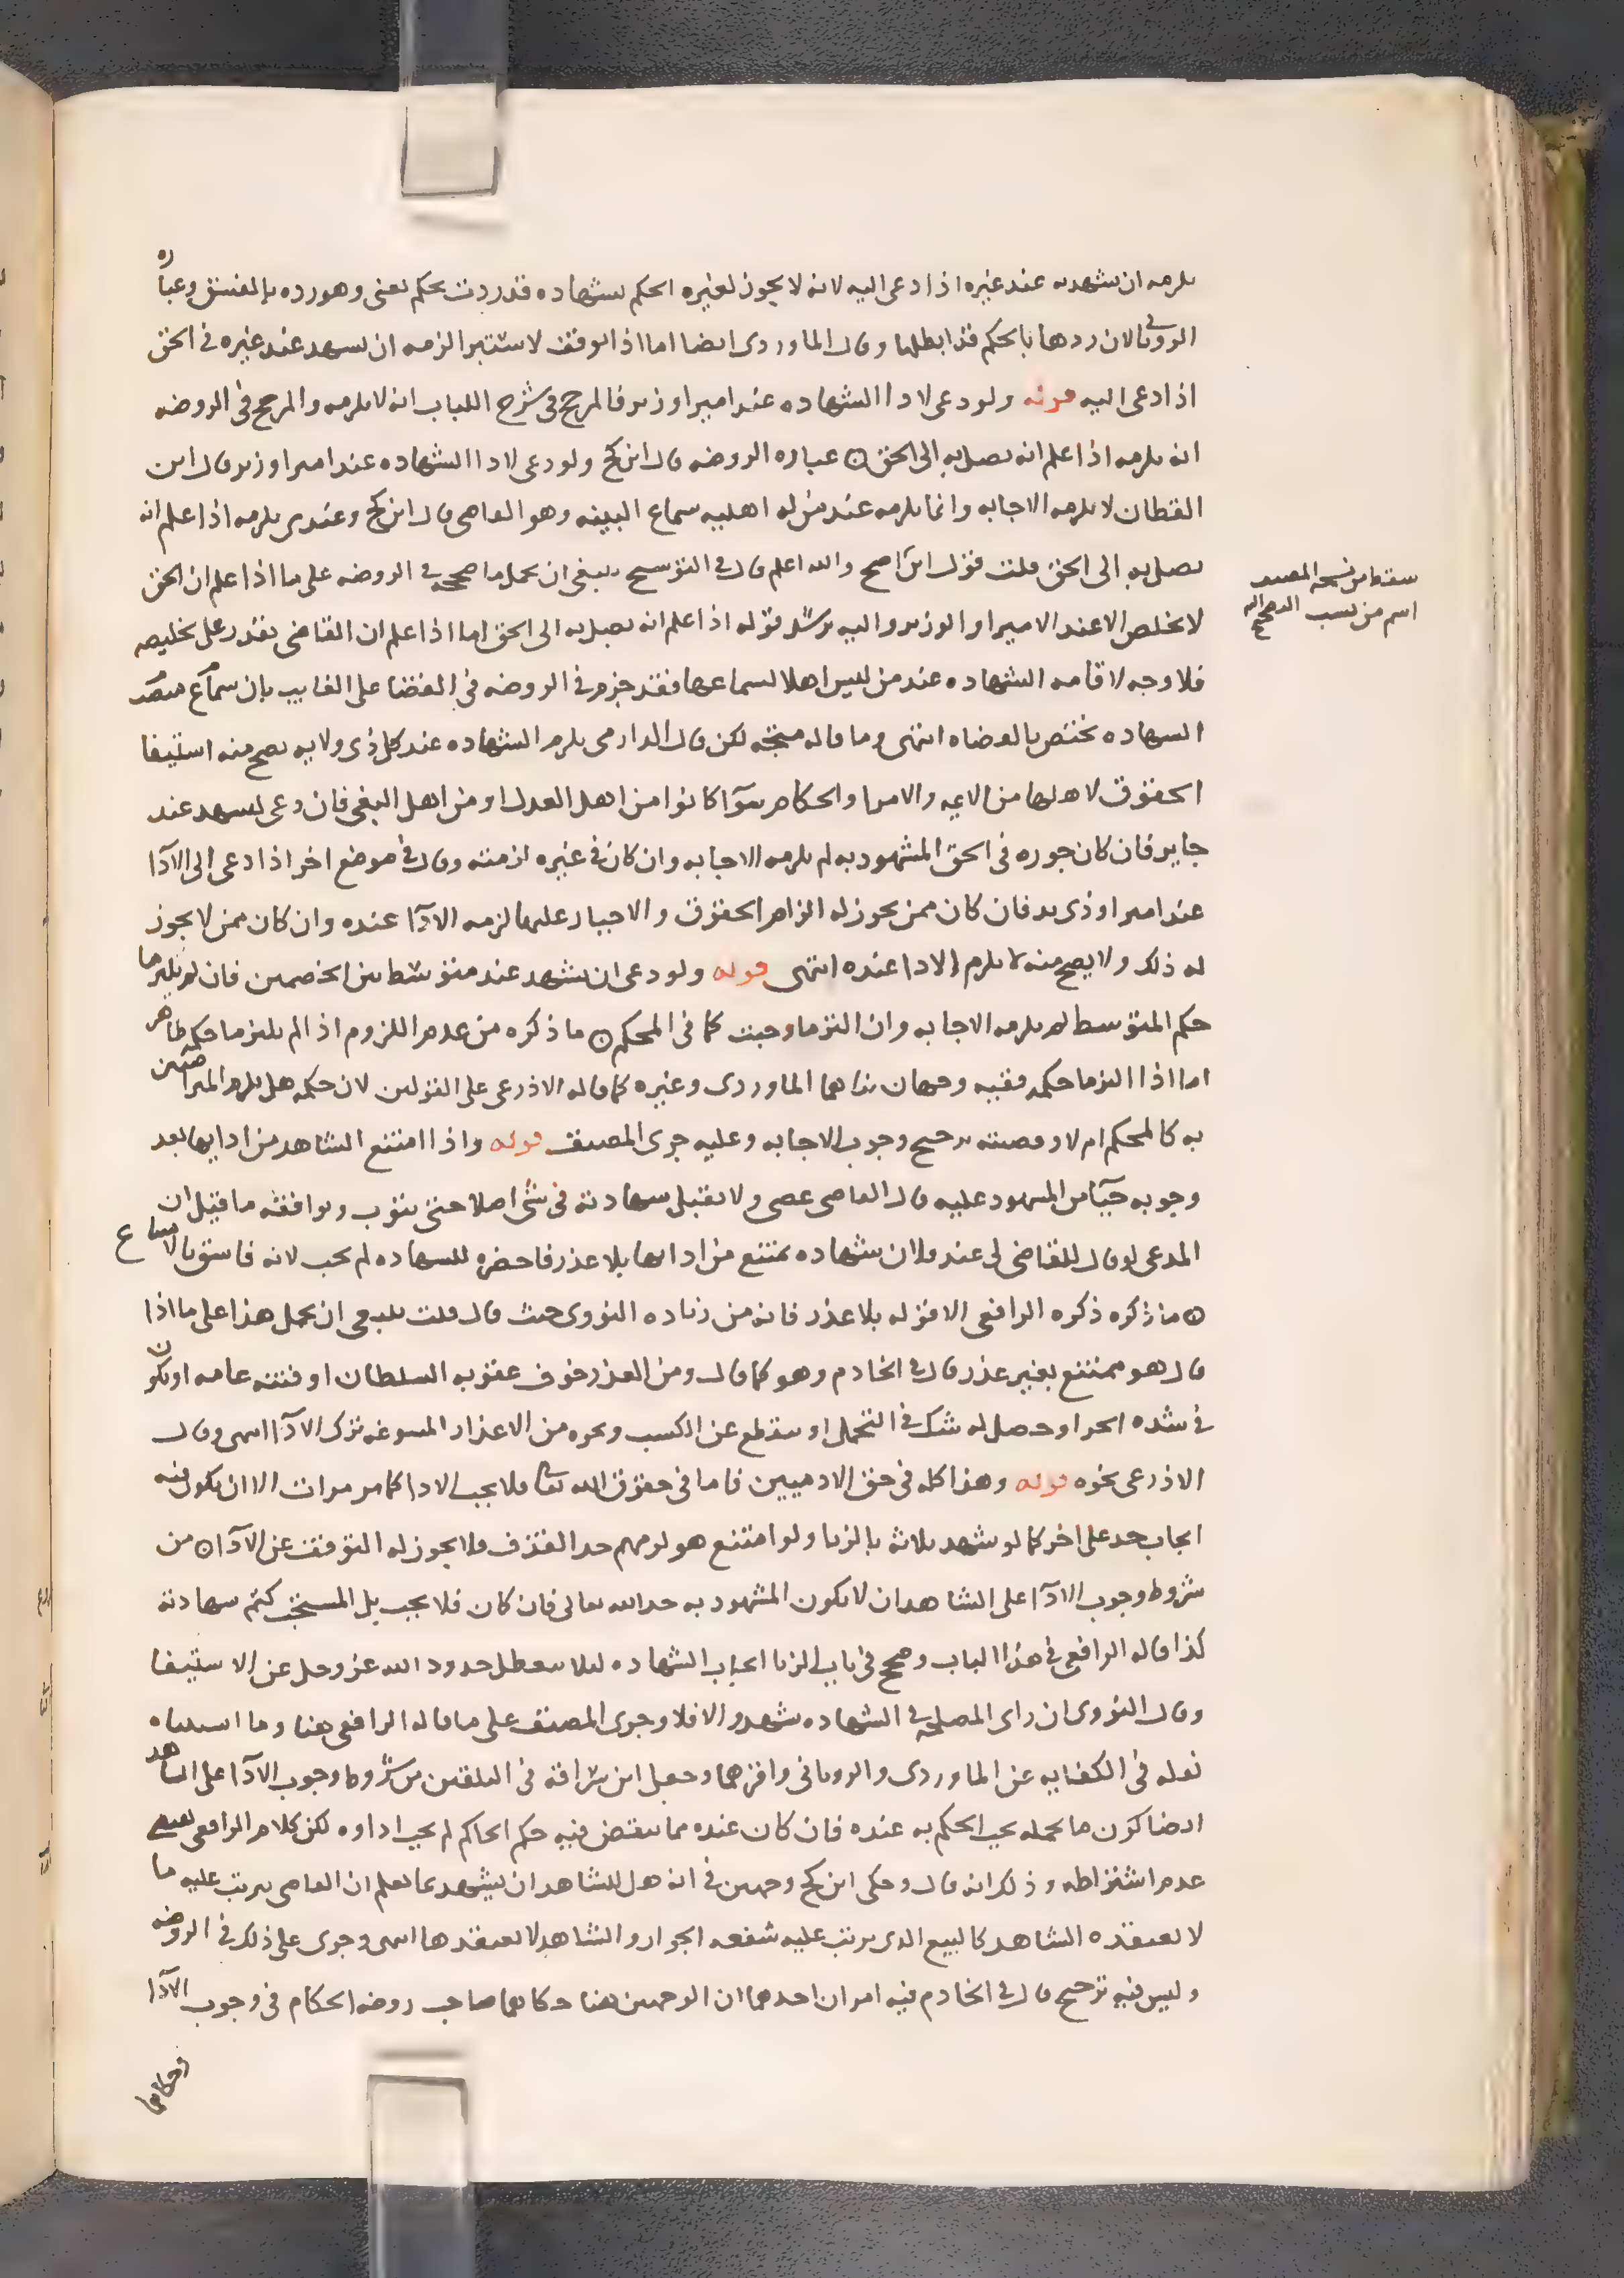 يلزمه ان يشهد به عند غيره اذا دعي اليه لانه لا يجوز لغيره الحكم بشهاده قد ردت بحكم يعني وهو رده بالفسق وعباره
الروياني لان ردها بالحكم قد ابطلها وقال الماوردي ايضا اما اذا توقف لاستبرا لزمه ان يشهد عند غيره في الحق
اذا دعي اليه قوله ولو دعي لادا الشهاده عند امير او وزير فالمرجح في شرح اللباب انه لا يلزمه والمرجح في الروضه
انه يلزمه اذا علم انه يصل به الى الحق ه عباره الروضه قال ابن كج ولو دعي لادا الشهاده عند امير او وزير قال ابن
القطان لا يلزمه الاجابه وانما يلزمه عند من له اهليه سماع البينه وهو القاضي قال ابن كج وعندي يلزمه اذا علم انه
يصل به الى الحق قلت قول ابن اصح والله اعلم قال في التوشيح ينبغي ان يحمل ما صححه في الروضه على ما اذا علم ان الحق
لا يخلص الا عند الامير او الوزير واليه يرشد قوله اذا علم انه يصل به الى الحق اما اذا علم ان القاضي يقدر على تخليصه
فلا وجه لاقامه الشهاده عند من ليس اهلا لسماعها فقد جزم في الروضه في القضا على الغايب بان سماع
الشهاده تختص بالقضاه انتهى وما قاله متجه لكن قال الدارمي يلزم الشهاده عند كل ذي ولايه يصح منه استيفا
الحقوق لاهلها من الايمه والامرا والحكام سوآ كانوا من اهل العدل او من اهل البغي فان دعي ليشهد عند
جاير فان كان جوره في الحق المشهود به لم يلزمه الاجابه وان كان في غيره لزمته وقال في موضع اخر اذا دعي الى الآدا
عند امير او ذي يد فان كان ممن يجوز له الزام الحقوق والاجبار عليها لزمه الادآ عنده وان كان ممن لا يجوز
له ذلك ولا يصح منه لا يلزم الادا عنده انتهى قوله ولو دعي ان يشهد عند متوسط بين الخصمين فان لم يلتزما
حكم المتوسط لم يلزمه الاجابه وان التزما وجبت كما في المحكم ه ما ذكره من عدم اللزوم اذا لم يلتزما حكمه ظاهر
اما اذا التزما حكمه ففيه وجهان بناهما الماوردي وغيره كما قاله الاذرعي على القولين لان حكمه هل يلزم المتراضيين
به كالمحكم ام لا وقضيته ترجيح وجوب الاجابه وعليه جرى المصنف قوله واذا امتنع الشاهد من ادايها بعد
وجوبه حيآ من المشهود عليه قال القاضي عصى ولا يقبل شهادته في شي اصلا حتى يتوب ويوافقه ما قيل ان
المدعي لو قال للقاضي لي عند فلان شهاده يمتنع من ادايها بلا عذر فاحضره للشهاده لم يجب لانه فاسق بالامتناع
ه ما ذكره ذكره الرافعي الا قوله بلا عذر فانه من زياده النووي حيث قال قلت ينبغي ان يحمل هذا على ما اذا
قال هو ممتنع بغير عذر قال في الخادم وهو كما قال ومن العذر خوف عقوبه السلطان او فتنه عامه او يكون
في شده الحر او حصل له شك في التحمل او ينقطع عن الكسب ونحوه من الاعذار المسوغه ترك الادآ انتهى وقال
الاذرعي نحوه قوله وهذا كله في حق الادميين فاما في حقوق الله تعالى فلا يجب الادا كما مر مرات الا ان يكون فيه
ايجاب حد على اخر كما لو شهد ثلاثه بالزنا ولو امتنع هو لزمهم حد القذف فلا يجوز له التوقف عن الادآ ه من
شروط وجوب الادآ على الشاهد ان لا يكون المشهود به حد الله تعالى فان كان فلا يجب بل المستحب كتم شهادته
كذا قاله الرافعي في هذا الباب وصحح في باب الزنا ايجاب الشهاده ليلا يتعطل حدود الله عز وجل عن الاستيفا
وقال النووي ان راى المصلحه في الشهاده شهد والا فلا وجرى المصنف على ما قاله الرافعي هنا وما استثناه
نقله في الكفايه عن الماوردي والروياني واقرهما وجعل ابن سراقه في التلقين من شروط وجوب الادآ على الشاهد
ايضا كون ما تحمله يجب الحكم به عنده فان كان عنده مما ينقض فيه حكم الحاكم لم يجب اداوه لكن كلام الرافعي يقتضي
عدم اشتراطه وذلك انه قال وحكى ابن كج وجهين في انه هل للشاهد ان يشهد بما يعلم ان القاضي يرتب عليه ما
لا يعتقده الشاهد كالبيع الذي يرتب عليه شفعه الجوار والشاهد لا يعتقدها انتهى وجرى على ذلك في الروضه
وليس فيه ترجيح قال في الخادم فيه امران احدهما ان الوجهين هنا حكاهما صاحب روضه الحكام في وجوب الادآ
وحكاهما
سقط من نسخه المصنف
اسم من نسب التصحيح اليه